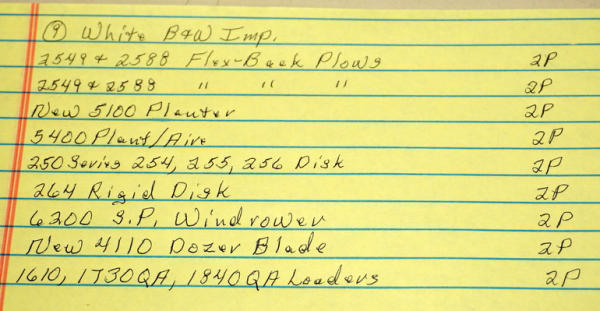 ⑨ White B&W Imp.
2549 & 2588 Flex-Back Plows 2P
2549 & 2588 " " " 2P
New 5100 Planter 2P
5400 Plant/Aire 2P
250 Series 254, 255, 256 Disk 2P
264 Rigid Disk 2P
6200 S.P. Windrower 2P
New 4110 Dozer Blade 2P
1610, 1730QA, 1840QA Loaders 2P